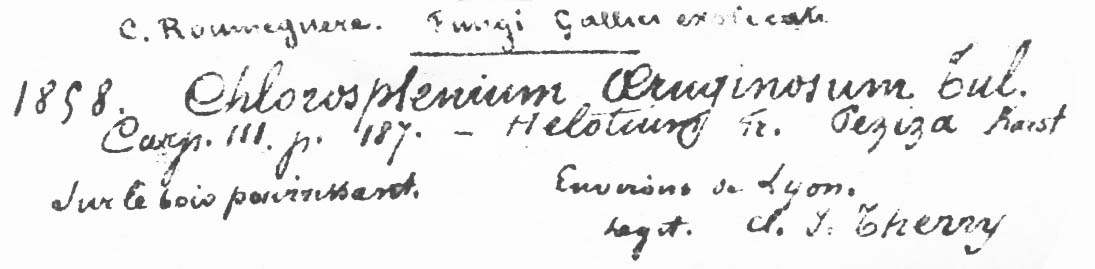 C. Roumeguere. Fungi Gallici exsiccati
1858. Chlorosplenium Œruginosum Tul.
Carp. III. p. 187. — Helotium Fr. Peziza Karst
Sur le bois pourrissant. Environs de Lyon.
Legit. J. Therry